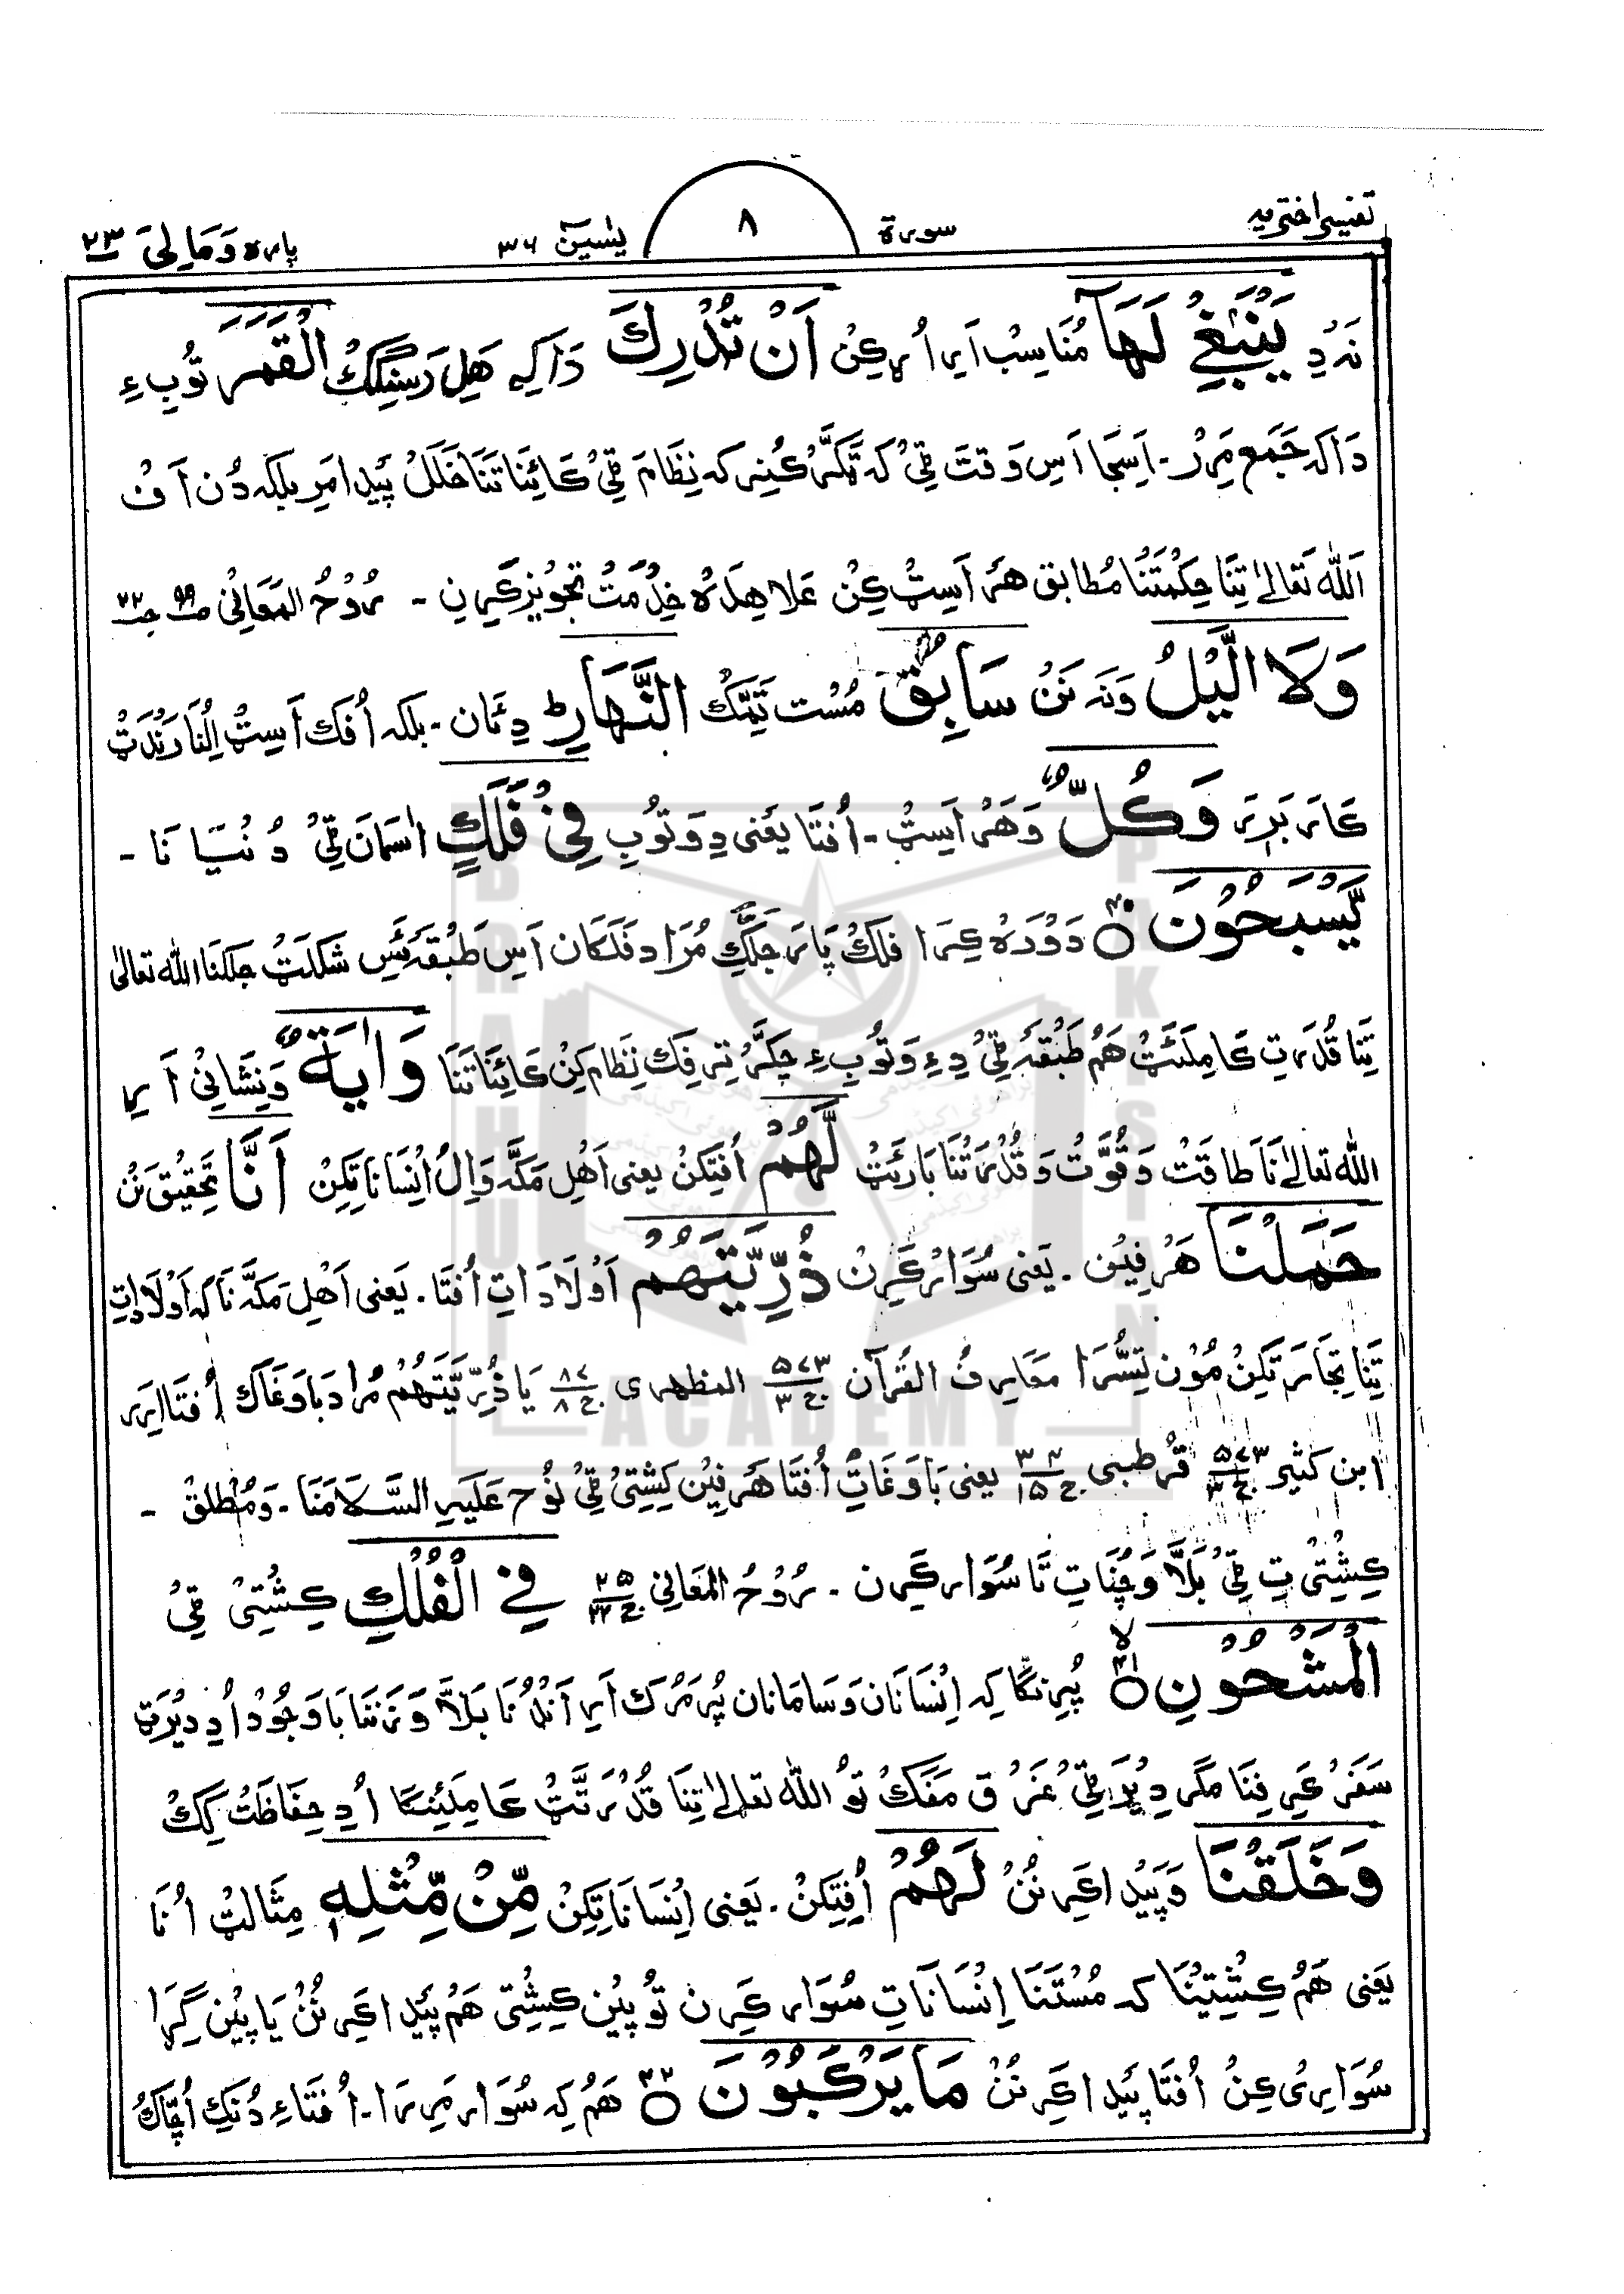 تفسیر اختریہ
سورۃ ۸ یٰسٓین ۳۶
پارہ وَمَا لِیَ ۲۳
نَہ دِ یَنْۢبَغِیْ لَهَاۤ مُنَاسِبْ اَرِ اُرکِنْ اَنْ تُدْرِكَ دَاکِہ هَلِ رَسِنِگِکْ الْقَمَرَ تُوبِءِ
دَاکہ جَمَع مَرِرْ۔ اَسِجَا اَسِ وَقتَ ٹِیْ کہ ٹَکَّرْ کُنِر کہ نِظَامَ ٹِیْ کَائِنَاتَنَا خَلَلْ پَیْدا مَرِ بلکہ دُن اَفْ
اَللّٰہ تَعَالیٰ تِنَا حِکْمَتَنَا مُطَابِق هَرْ اَسِٹْ کِنْ عَلاَ هِدَہ خِدْمَتْ تجْوِیْزکَرِنِ ۔ رُوْحُ المَعَانِیْ صـ جـ ۲۳
وَلَا الَّیْلُ وَنَہ نَنْ سَابِقُ مُسْت تِمِّكْ النَّهَارِؕ دِئَان۔ بلکہ اُفَك اَسِٹْ اِلْنَا رَنْدَٹْ
کَارَ بَرِرَ وَكُلٌّ وَهَرْ اَسِٹْ ۔ اُفتَا یعنی دِ وَ تُوبِ فِیْ فَلَكٍ اٰسمَان ٹِیْ دُنْیَا نَا ۔
یَّسْبَحُوْنَ ۴۰ دَوْرَہ کِرَا فلَكْ پَارَ چَلَّکِ مُرَاد فَلَکَان اَسِ طَبْقَہ ئَسِ شَکلَٹْ چَلکنَا اللہ تعالیٰ
تِنَا قُدْرَتِ کَامِلَئَٹْ هَمْ طَبْقَہ ٹِیْ دِءِ وَ تُوبِ ءِ چَکَّرْ تِرِفِك نِظَام کِنْ کَائِنَاتَنَا وَاٰیَةٌ وَنِشَانِیْ اَرِ
اللہ تعالیٰ نَا طَاقَتْ وَ قُوَّتْ وَ قُدْرَتْنَا بَارَئَٹْ لَّهُمْ اُفتِکنْ یعنی اَهْلِ مَکَّہ وَ اِلْ اِنْسَانَاتِکِنْ اَنَّا تَحقِیْق نَنْ
حَمَلْنَا هَرْفِیْن ۔ یَعنی سُوَارْ کَرِنْ ذُرِّیَّتَهُمْ اَوْلَادَاتِ اُفتَا ۔ یَعنی اَهْلِ مَکَّہ نَا کہ اَوْلَادَاتِ
تِنَا تِجَارَتکِنْ مُوْن تِسُّرَا مَعَارِفُ القُرآن ۵۷۳ ج ۳ المظهری ۸۷ ج ۸ یَا ذُرِّیَّتَهُمْ مُرَاد بَاوَغَاك اُفتَا اَرِر
ابن کثیر ۵۷۳ ج ۳ قُرطبی ۳۴ ج ۱۵ یعنی بَاوَغَاتِ اُفتَا هَرفِیْن کِشْتِیْ ٹِیْ نُوْح عَلَیہِ السَّلَامَنَا ۔ وَمُطْلَقْ ۔
کِشْتِیْ تِ ٹِیْ بَلَّا وَ چُنَاتِ تَا سُوَار کَرِن ۔ رُوْحُ المَعَانِی ۲۵ ج ۲۳ فِی الْفُلْكِ کِشْتِیْ ٹِیْ
الْمَشْحُوْنِ ۴۱ پُرِنگَا کِہ اِنْسَانَان وَ سَامَانَان پُر مَرْك اَرِ اَنْدُنَا بَلَّا وَ نَنَا بَاوَجُوْد اُدِ دِیْرَٹِ
سَفَرْ کَرِفِنَا مَگر دِیْرَ ٹِیْ غَرْق مَفَكْ تَوْ اللہ تعالیٰ تِنَا قُدْرَتَٹْ کَامِلَئِنَا اُدِ حِفَاظَتْ کِكْ
وَخَلَقْنَا وَپَیْدا کَرِ نَنْ لَهُمْ اُفتِکِنْ ۔ یَعنی اِنْسَانَاتِکِنْ مِّنْ مِّثْلِهٖ مِثَالَٹْ اُنَا
یَعنی هَمْ کِشْتِیْنَا کہ مُسْتَنَا اِنْسَانَاتِ سُوَار کَرِن تَوْ پِیْن کِشْتِی هَمْ پَیْدا کَرِ نَنْ یَا پِیْن گِرَا
سُوَارِی کِنْ اُفتَا پَیْدا کَرِ نَنْ مَا یَرْكَبُوْنَ ۴۲ هَمْ کہ سُوَار مَرِرَا۔ اُفتَاءِ دُنکِ اُچَّاكْ
BRAHUI
ACADEMY
PAKISTAN